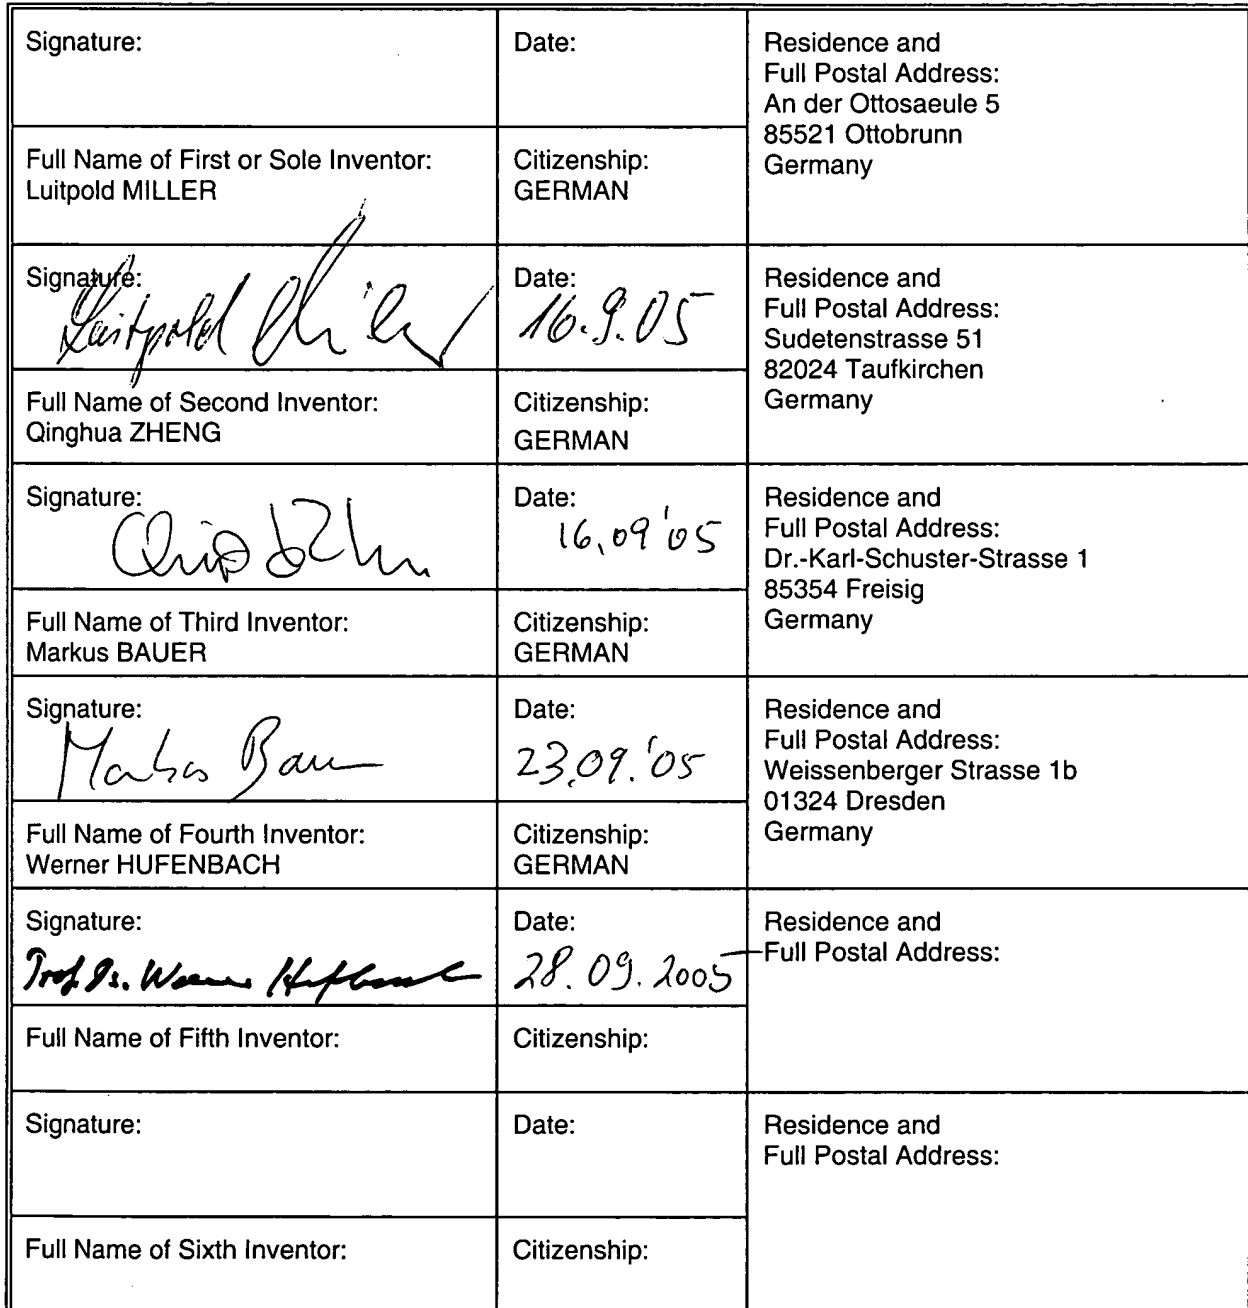 Signature:
Date:
Residence and
Full Postal Address:
An der Ottosaeule 5
85521 Ottobrunn
Germany
Full Name of First or Sole Inventor:
Luitpold MILLER
Citizenship:
GERMAN
Signature:
Luitpold Miller
Date:
16.9.05
Residence and
Full Postal Address:
Sudetenstrasse 51
82024 Taufkirchen
Germany
Full Name of Second Inventor:
Qinghua ZHENG
Citizenship:
GERMAN
Signature:
Date:
16.09'05
Residence and
Full Postal Address:
Dr.-Karl-Schuster-Strasse 1
85354 Freisig
Germany
Full Name of Third Inventor:
Markus BAUER
Citizenship:
GERMAN
Signature:
Markus Bauer
Date:
23.09.'05
Residence and
Full Postal Address:
Weissenberger Strasse 1b
01324 Dresden
Germany
Full Name of Fourth Inventor:
Werner HUFENBACH
Citizenship:
GERMAN
Signature:
Prof. Dr. Werner Hufenbach
Date:
28.09.2005
Residence and
Full Postal Address:
Full Name of Fifth Inventor:
Citizenship:
Signature:
Date:
Residence and
Full Postal Address:
Full Name of Sixth Inventor:
Citizenship: